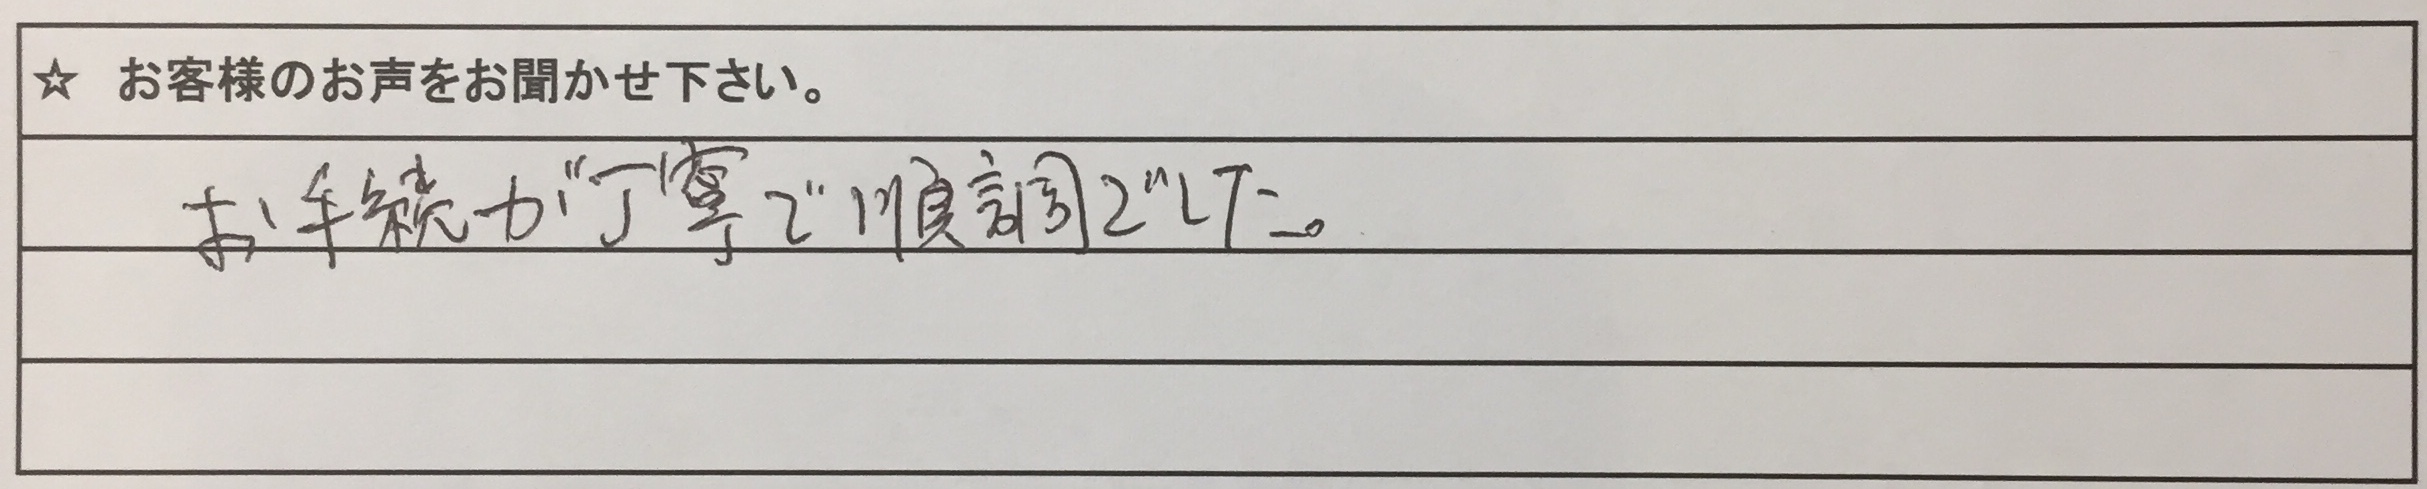 ☆ お客様のお声をお聞かせ下さい。
お手続が丁寧で順調でした。